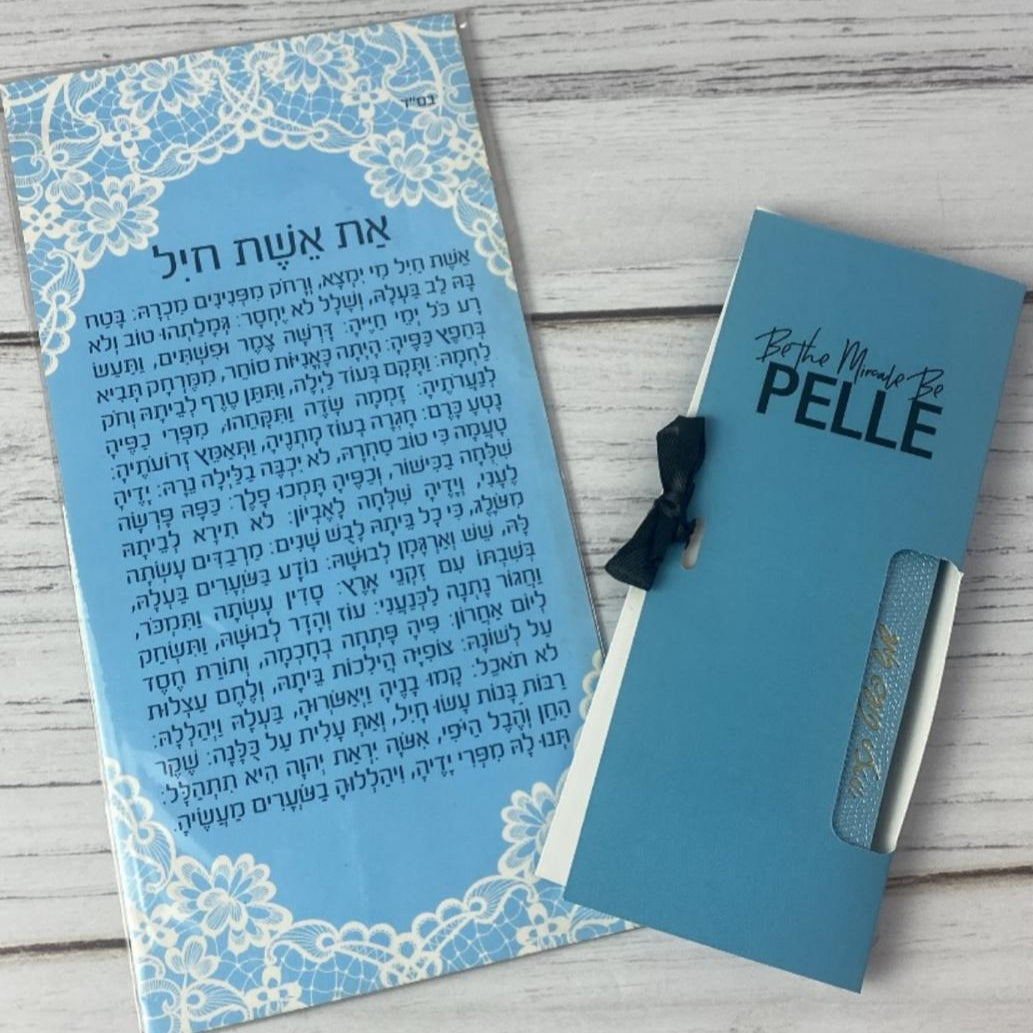 בס"ד
אַת אֵשֶׁת חיִל
אֵשֶׁת חַיִל מִי יִמְצָא, וְרָחֹק מִפְּנִינִים מִכְרָהּ: בָּטַח
בָּהּ לֵב בַּעְלָהּ, וְשָׁלָל לֹא יֶחְסָר: גְּמָלַתְהוּ טוֹב וְלֹא
רָע כֹּל יְמֵי חַיֶּיהָ: דָּרְשָׁה צֶמֶר וּפִשְׁתִּים, וַתַּעַשׂ
בְּחֵפֶץ כַּפֶּיהָ: הָיְתָה כָּאֳנִיּוֹת סוֹחֵר, מִמֶּרְחָק תָּבִיא
לַחְמָהּ: וַתָּקָם בְּעוֹד לַיְלָה, וַתִּתֵּן טֶרֶף לְבֵיתָהּ וְחֹק
לְנַעֲרֹתֶיהָ: זָמְמָה שָׂדֶה וַתִּקָּחֵהוּ, מִפְּרִי כַפֶּיהָ
נָטְעָ כָּרֶם: חָגְרָה בְעוֹז מָתְנֶיהָ, וַתְּאַמֵּץ זְרוֹעֹתֶיהָ:
טָעֲמָה כִּי טוֹב סַחְרָהּ, לֹא יִכְבֶּה בַלַּיְלָה נֵרָהּ: יָדֶיהָ
שִׁלְּחָה בַכִּישׁוֹר, וְכַפֶּיהָ תָּמְכוּ פָלֶךְ: כַּפָּהּ פָּרְשָׂה
לֶעָנִי, וְיָדֶיהָ שִׁלְּחָה לָאֶבְיוֹן: לֹא תִירָא לְבֵיתָהּ
מִשָּׁלֶג, כִּי כָל בֵּיתָהּ לָבֻשׁ שָׁנִים: מַרְבַדִּים עָשְׂתָה
לָּהּ, שֵׁשׁ וְאַרְגָּמָן לְבוּשָׁהּ: נוֹדָע בַּשְּׁעָרִים בַּעְלָהּ,
בְּשִׁבְתּוֹ עִם זִקְנֵי אָרֶץ: סָדִין עָשְׂתָה וַתִּמְכֹּר,
וַחֲגוֹר נָתְנָה לַכְּנַעֲנִי: עוֹז וְהָדָר לְבוּשָׁהּ, וַתִּשְׂחַק
לְיוֹם אַחֲרוֹן: פִּיהָ פָּתְחָה בְחָכְמָה, וְתוֹרַת חֶסֶד
עַל לְשׁוֹנָהּ: צוֹפִיָּה הֲלִיכוֹת בֵּיתָהּ, וְלֶחֶם עַצְלוּת
לֹא תֹאכֵל: קָמוּ בָנֶיהָ וַיְאַשְּׁרוּהָ, בַּעְלָהּ וַיְהַלְלָהּ:
רַבּוֹת בָּנוֹת עָשׂוּ חָיִל, וְאַתְּ עָלִית עַל כֻּלָּנָה: שֶׁקֶר
הַחֵן וְהֶבֶל הַיֹּפִי, אִשָּׁה יִרְאַת יְהוָה הִיא תִתְהַלָּל:
תְּנוּ לָהּ מִפְּרִי יָדֶיהָ, וִיהַלְלוּהָ בַשְּׁעָרִים מַעֲשֶׂיהָ.
Be the Miracle Be
PELLE